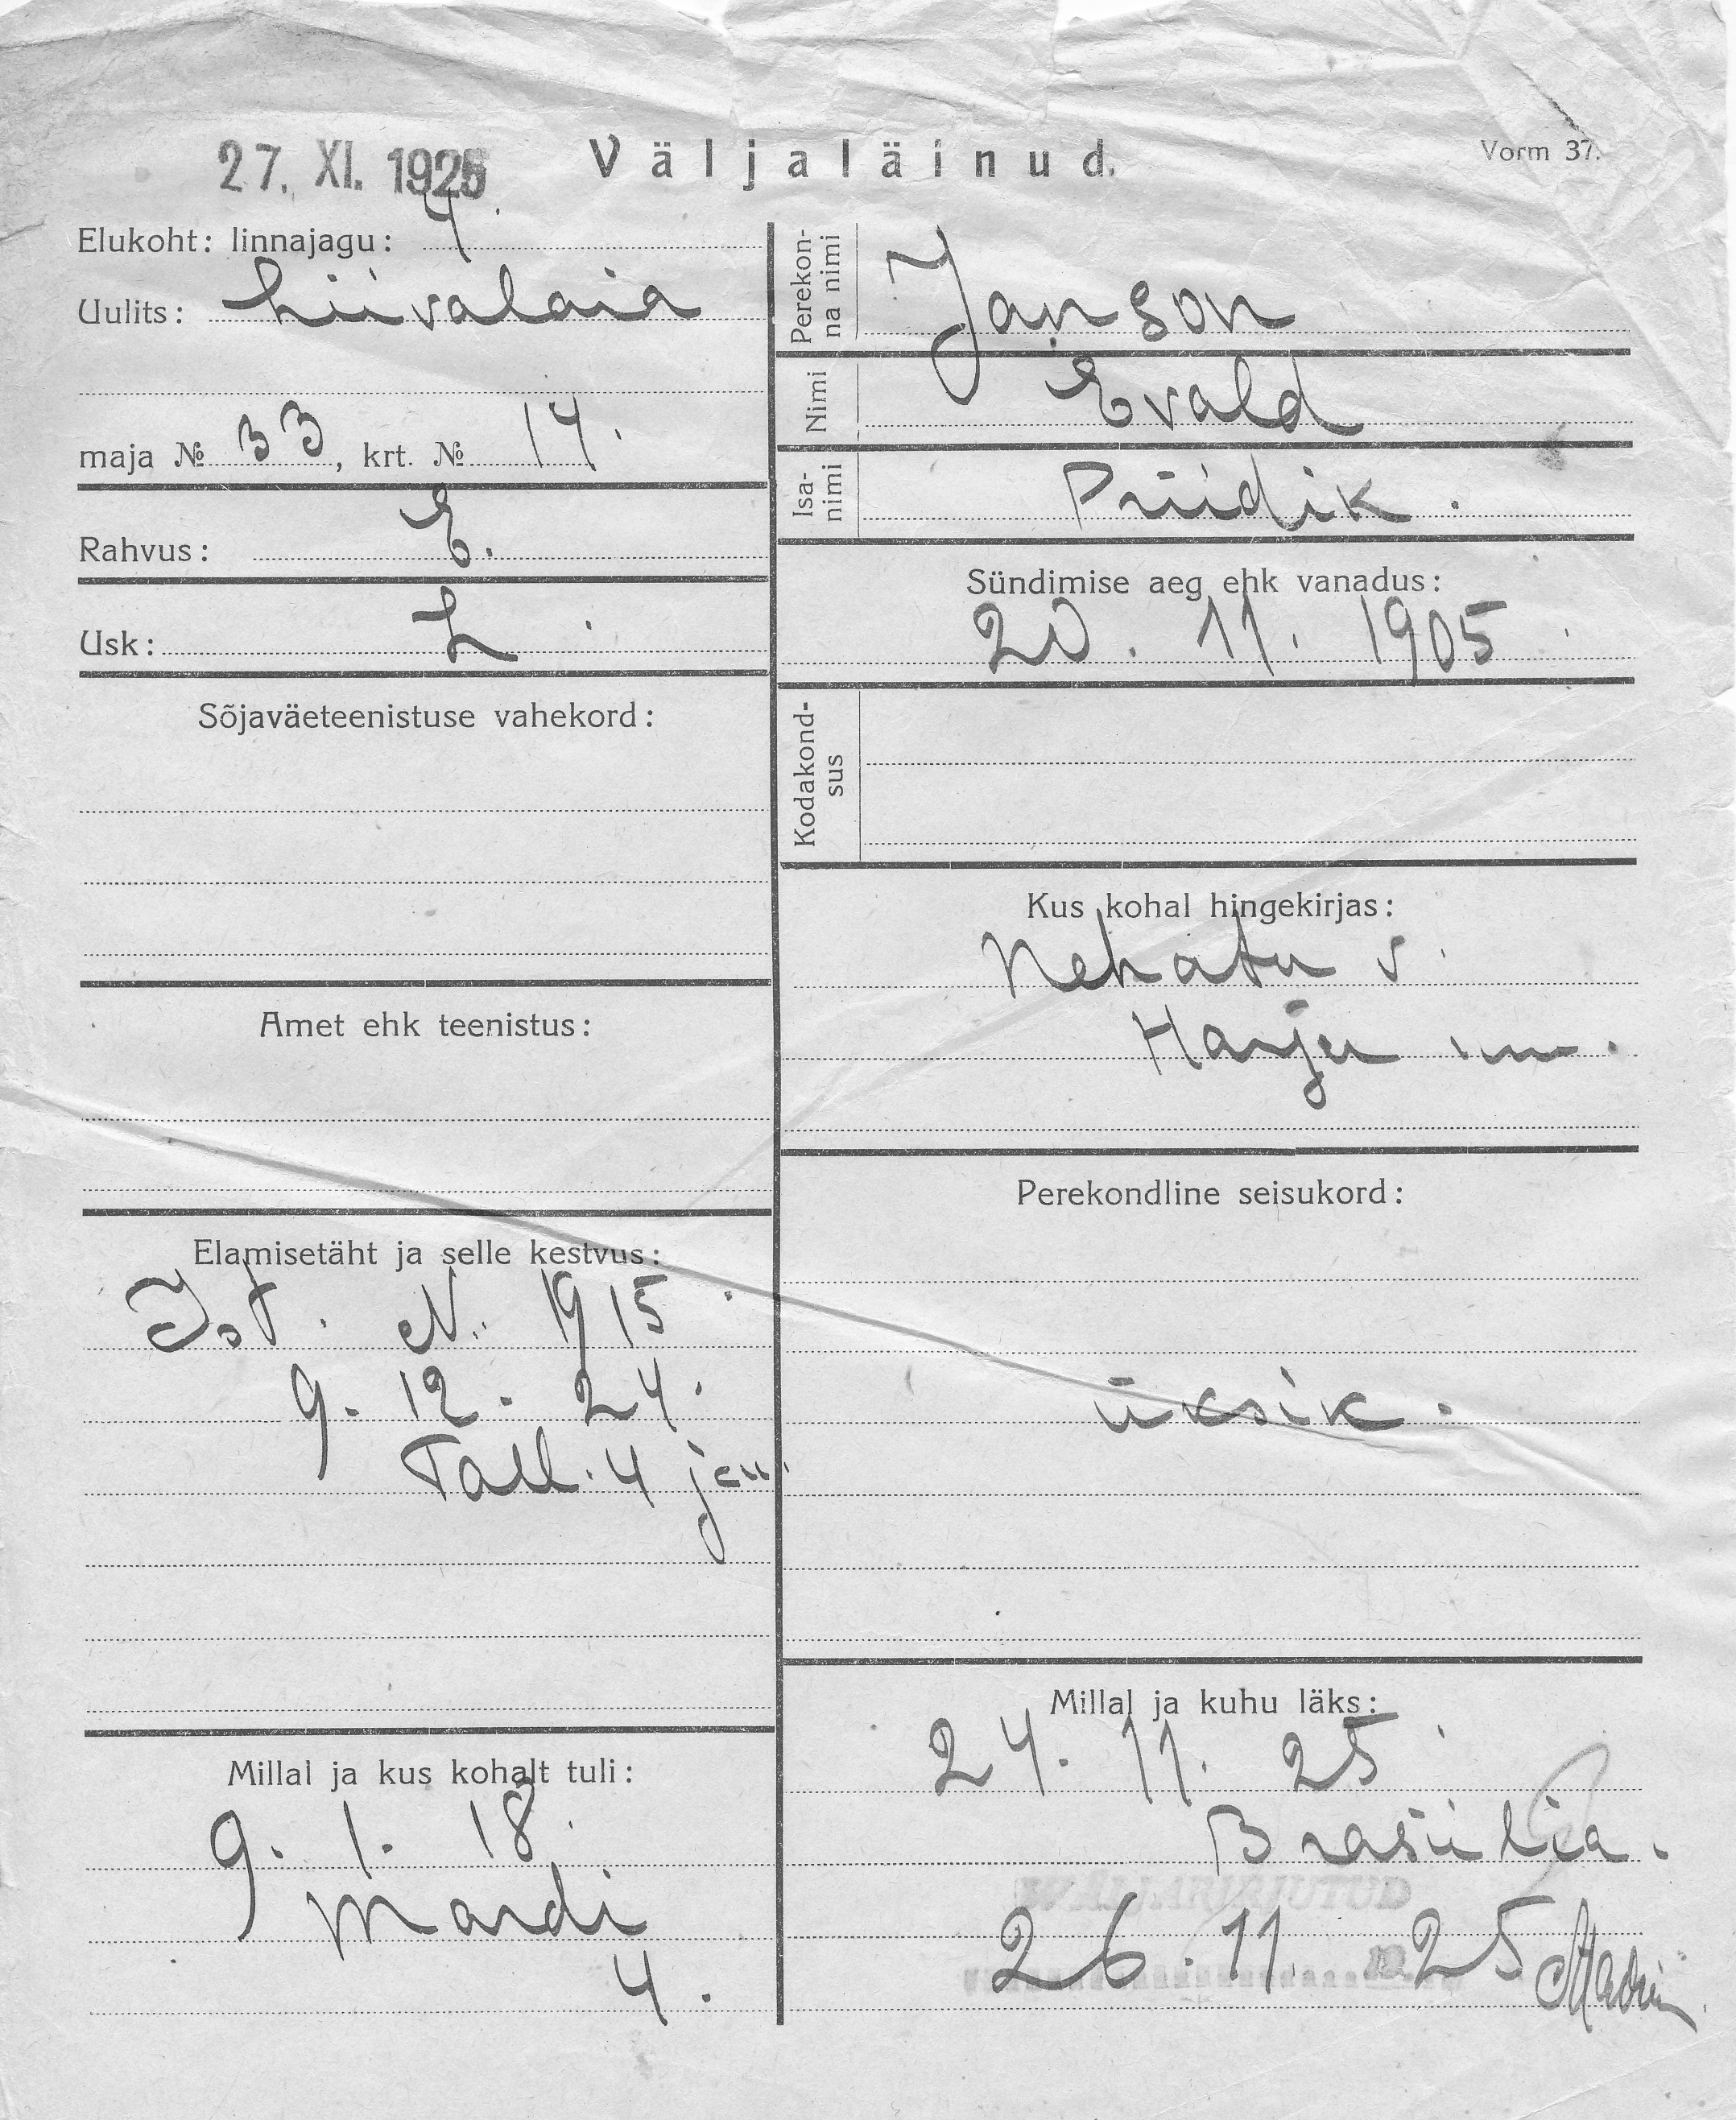 27. XI. 1925
Väljaläinud.
Vorm 37.
Elukoht: linnajagu: 4.
Uulits: Liivalaia
maja № 33, krt. № 14.
Rahvus: E.
Usk: L.
Sõjaväeteenistuse vahekord:
Amet ehk teenistus:
Elamisetäht ja selle kestvus:
Ist. N. 1915
9. 12. 24.
Tall. 4 jau.
Millal ja kus kohalt tuli:
9. 1. 18.
Mardi
4.
Perekon-
na nimi
Janson
Nimi
Evald
Isa-
nimi
Priidik.
Sündimise aeg ehk vanadus:
20. 11. 1905
Kodakond-
sus
Kus kohal hingekirjas:
Nehatu v.
Harju m.
Perekondline seisukord:
üksik.
Millal ja kuhu läks:
24. 11. 25
Brasiilia.
VÄLJAKIRJUTUD
26. 11. 25